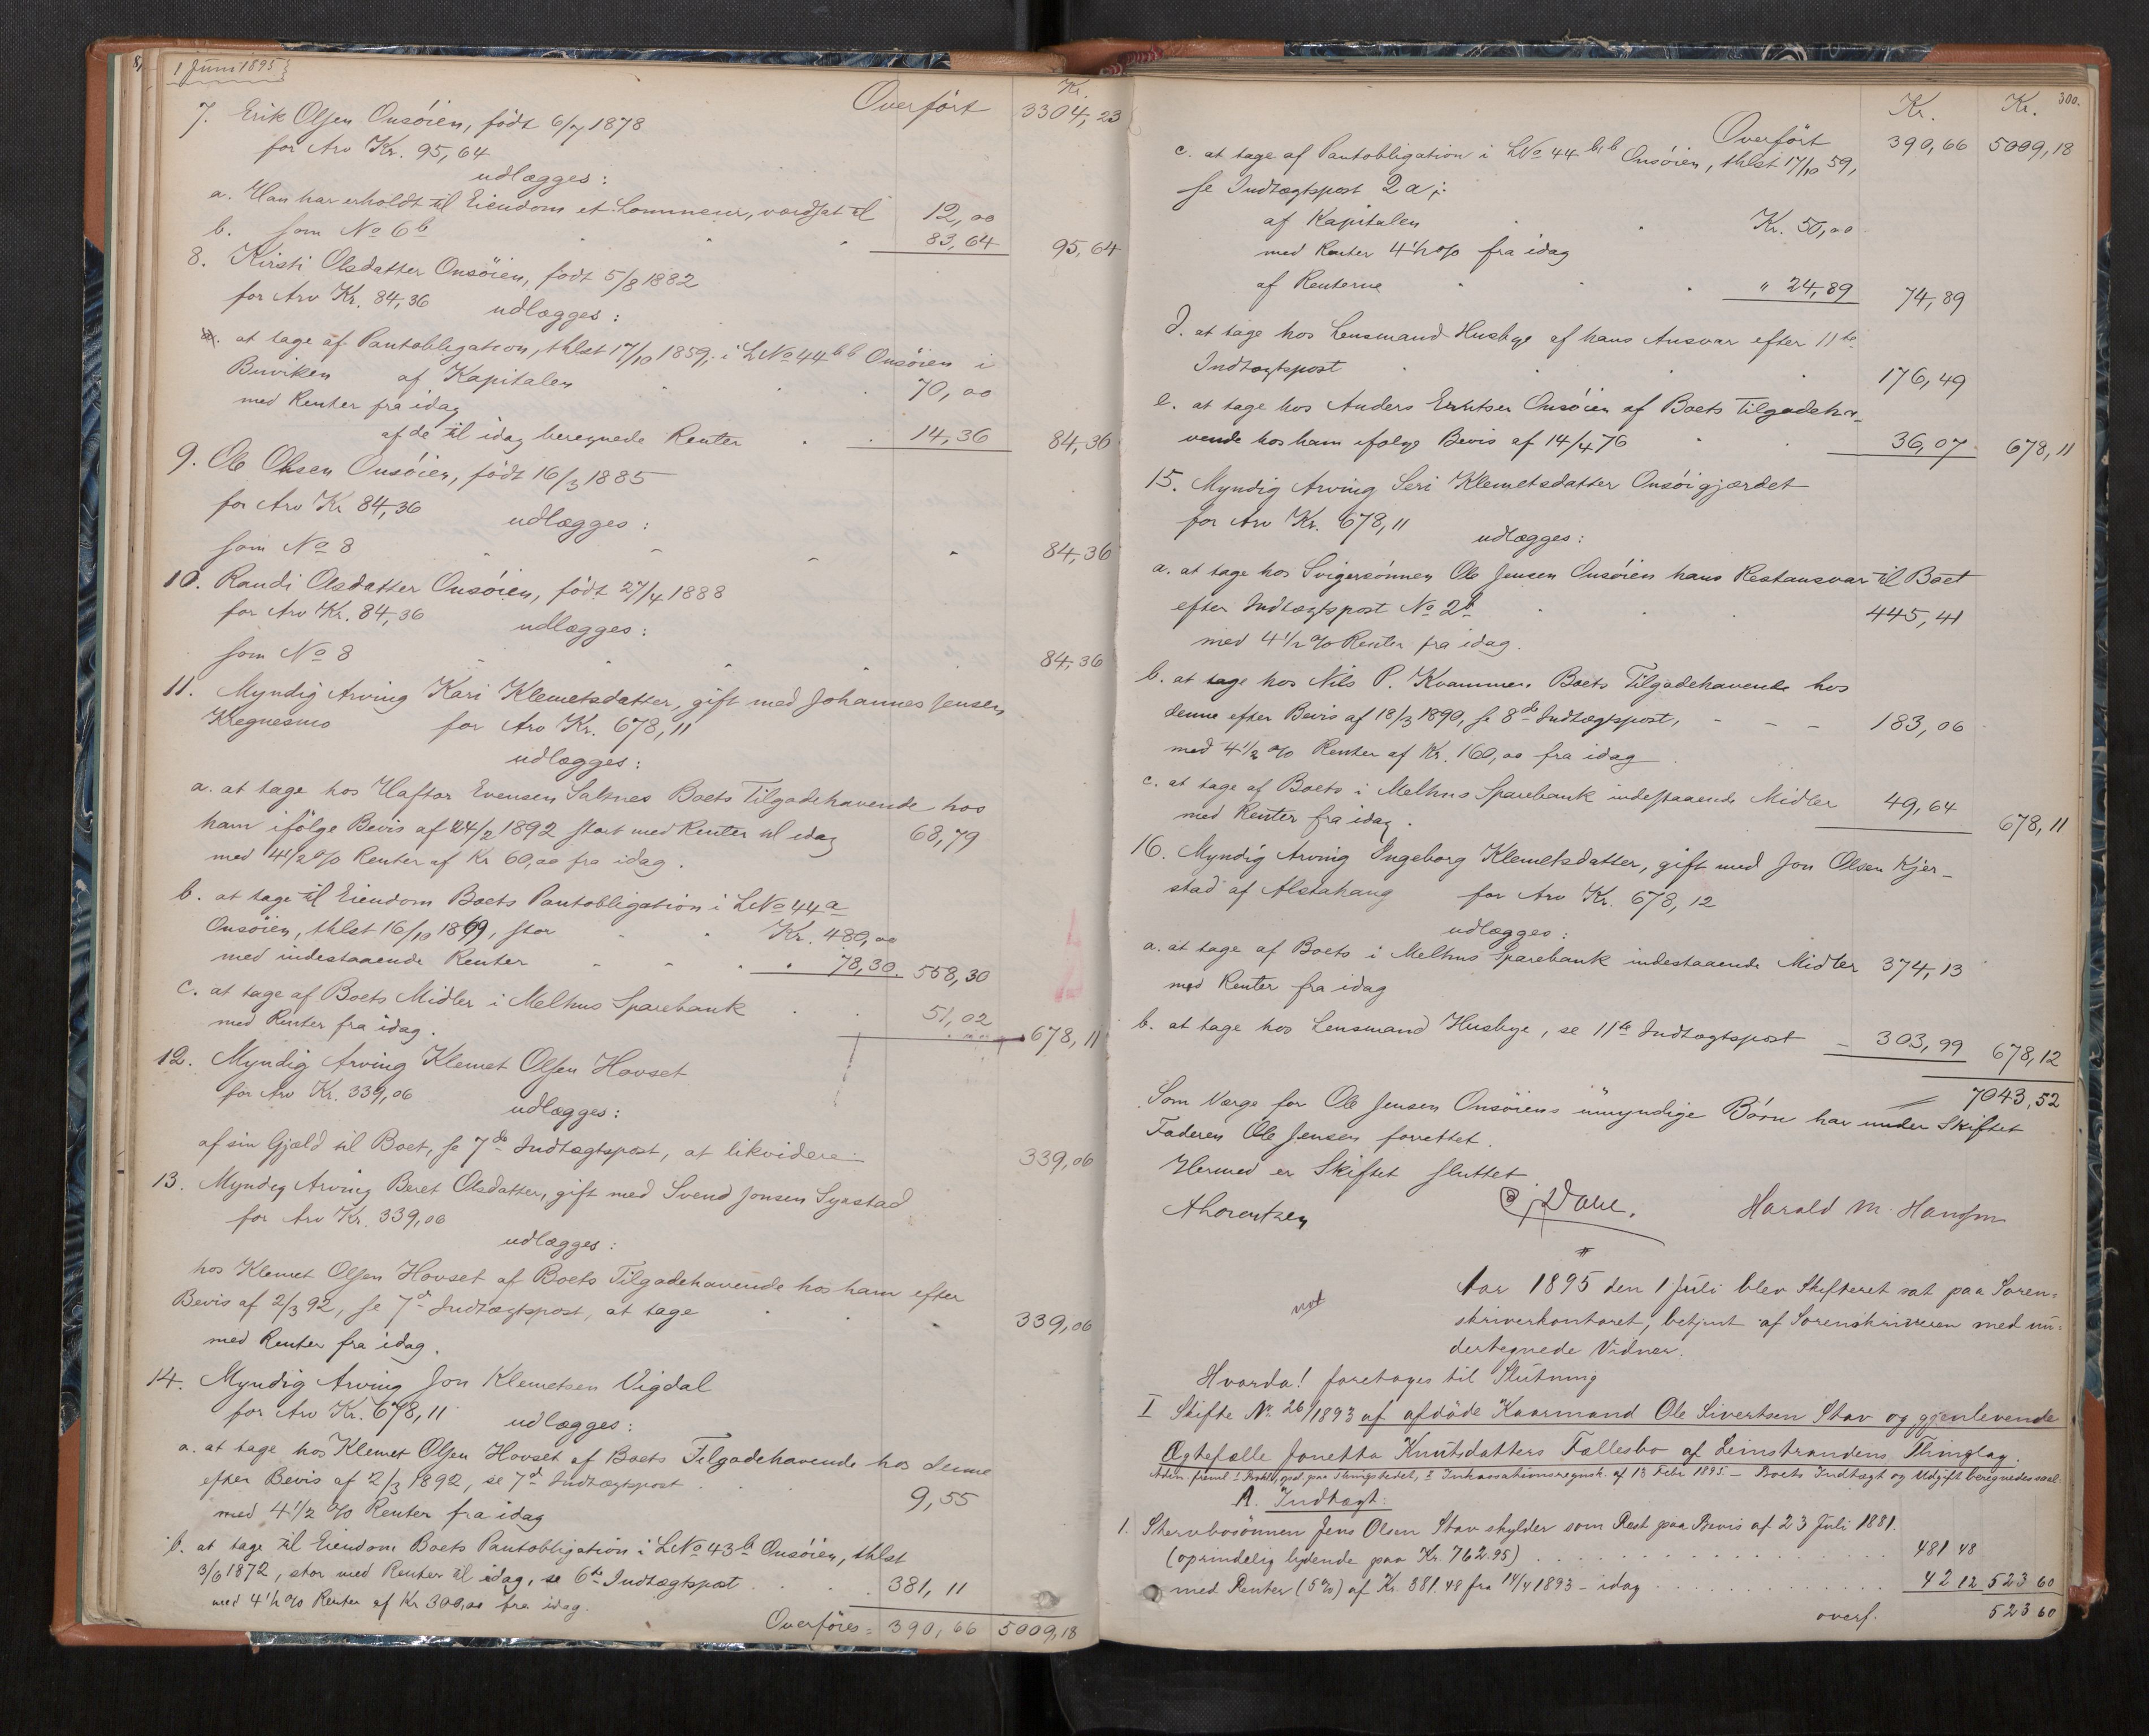 1 Juni 1895
Kr.
Overført 3304,23
7. Erik Olsen Onsöien, födt 6/7 1878
for Arv Kr. 95,64
udlægges:
a. Han har erholdt til Eiendom et Lommeur, værdsat til 12,00
b. som No 6b 83,64 95,64
8. Kirsti Olsdatter Onsöien, födt 5/8 1882
for Arv Kr. 84,36 udlægges:
at tage af Pantobligation, thlst 17/10 1859, i LNo 44bb Onsöien i
Buviken af Kapitalen 70,00
med Renter fra idag
af de til idag beregnede Renter 14,36 84,36
9. Ole Olsen Onsöien, födt 16/3 1885
for Arv Kr 84,36 udlægges:
som No 8 84,36
10. Randi Olsdatter Onsöien, födt 27/4 1888
for Arv Kr. 84,36 udlægges:
som No 8 84,36
11. Myndig Arving Kari Klemetsdatter, gift med Johannes Jensen
Kregnesmo for Arv Kr. 678,11
udlægges:
a. at tage hos Haftor Evensen Saltnes Boets Tilgodehavende hos
ham ifölge Bevis af 24/2 1892 stort med Renter til idag 68,79
med 4 1/2 % Renter af Kr 60,00 fra idag.
b. at tage til Eiendom Boets Pantobligation i LNo 44a
Onsöien, thlst 16/10 1869, stor Kr. 480,00
med indestaaende Renter 78,30 558,30
c. at tage af Boets Midler i Melhus Sparebank 51,02
med Renter fra idag. 678,11
12. Myndig Arving Klemet Olsen Hovset
for Arv Kr. 339,06
udlægges:
af sin Gjæld til Boet, se 7de Indtægtspost, at likvidere 339,06
13. Myndig Arving Beret Olsdatter, gift med Svend Jonsen Synstad
for Arv Kr. 339,06
udlægges:
hos Klemet Olsen Hovset af Boets Tilgodehavende hos ham efter
Bevis af 2/3 92, se 7de Indtægtspost, at tage 339,06
med Renter fra idag.
14. Myndig Arving Jon Klemetsen Vigdal
for Arv Kr. 678,11 udlægges:
a. at tage hos Klemet Olsen Hovset af Boets Tilgodehavende hos denne
efter Bevis af 2/3 1892, se 7de Indtægtspost 9,55
med 4 1/2 % Renter fra idag
b. at tage til Eiendom Boets Pantobligation i LNo 43b Onsöien, thlst
3/6 1872, stor med Renter til idag, se 6te Indtægtspost 381,11
med 4 1/2 % Renter af Kr 300,00 fra idag.
Overføres = 390,66 5009,18
300.
Kr. Kr.
Overført 390,66 5009,18
c. at tage af Pantobligation i LNo 44bb Onsöien, thlst 17/10 59,
se Indtægtspost 2a;
af Kapitalen Kr. 50,00
med Renter 4 1/2 % fra idag
af Renterne " 24,89 74,89
d. at tage hos Lensmand Husbye af hans Ansvar efter 11te
Indtægtspost 176,49
e. at tage hos Anders Estensen Onsöien af Boets Tilgodeha-
vende hos ham ifølge Bevis af 14/4 76 36,07 678,11
15. Myndig Arving Seri Klemetsdatter Onsöigjærdet
for Arv Kr. 678,11
udlægges:
a. at tage hos Svigersönnen Ole Jensen Onsöien hans Restansvar til Boet
efter Indtægtspost No 2b 445,41
med 4 1/2 % Renter fra idag.
b. at tage hos Nils P. Kvammen Boets Tilgodehavende hos
denne efter Bevis af 18/3 1890, se 8de Indtægtspost, 183,06
med 4 1/2 % Renter af Kr. 160,00 fra idag
c. at tage af Boets i Melhus Sparebank indestaaende Midler 49,64
med Renter fra idag. 678,11
16. Myndig Arving Ingeborg Klemetsdatter, gift med Jon Olsen Kjer-
stad af Alstahaug for Arv Kr. 678,12
udlægges:
a. at tage af Boets i Melhus Sparebank indestaaende Midler 374,13
med Renter fra idag
b. at tage hos Lensmand Husbye, se 11te Indtægtspost 303,99 678,12
7043,52
Som Værge for Ole Jensen Onsöiens umyndige Börn har under Skiftet
Faderen Ole Jensen forrettet.
Hermed er Skiftet sluttet
A Lorentzen Harald M. Hansen
Aar 1895 den 1 Juli blev Skifteret sat paa Soren-
skriverkontoret, betjent af Sorenskriveren med un-
dertegnede Vidner.
Hvorda! foretoges til Slutning
I Skifte No 26/1893 af afdöde Kaarmand Ole Sivertsen Stav og gjenlevende
Ægtefælle Jonetta Knutsdatters Fællesbo af Leinstrandens Thinglag.
Adm. freml. 1 Prokl., opl. paa Thingstedet, 2 Inkassationsregnsk. af 13 Febr 1895. – Boets Indtægt og Udgift beregnedes saal:
A. Indtægt:
1. Stervbosönnen Jens Olsen Stav skylder som Rest paa Bevis af 23 Juli 1881.
(oprindelig lydende paa Kr. 762.95) 481 48
med Renter (5%) af Kr. 381.48 fra 14/4 1893 – idag 42 12 523 60
overf. 523 60